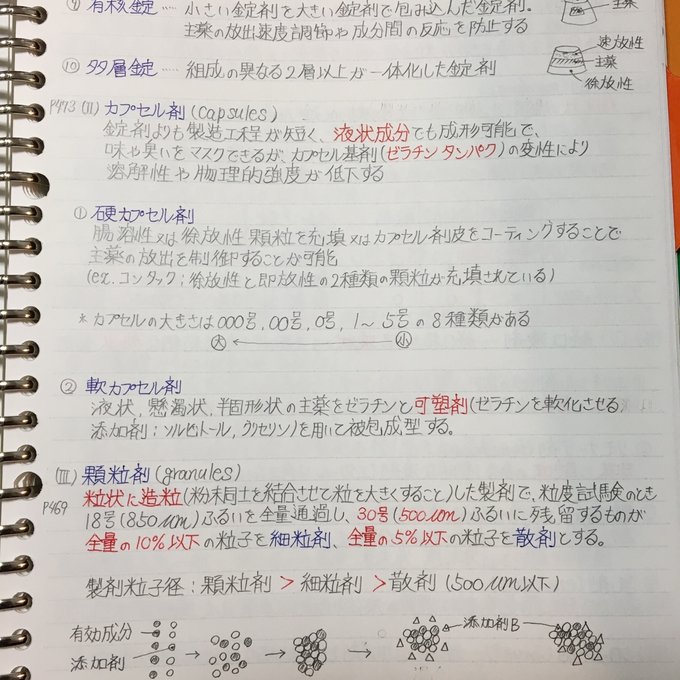 ⑨ 有核錠 ‥‥ 小さい錠剤を大きい錠剤で包み込んだ錠剤。
主薬の放出速度調節や成分間の反応を防止する
主薬
⑩ 多層錠 ‥‥ 組成の異なる2層以上が一体化した錠剤
速放性
主薬
徐放性
P473 (II) カプセル剤 (capsules)
錠剤よりも製造工程が短く、液状成分でも成形可能で、
味や臭いをマスクできるが、カプセル基剤(ゼラチンタンパク)の変性により
溶解性や物理的強度が低下する
① 硬カプセル剤
腸溶性又は徐放性顆粒を充填又はカプセル剤皮をコーティングすることで
主薬の放出を制御することが可能
(ex. コンタック; 徐放性と即放性の2種類の顆粒が充填されている)
* カプセルの大きさは 000号, 00号, 0号, 1〜5号 の 8種類がある
大 ← 小
② 軟カプセル剤
液状, 懸濁状, 半固形状の主薬をゼラチンと可塑剤(ゼラチンを軟化させる
添加剤; ソルビトール, グリセリン)を用いて被包成型する。
(III) 顆粒剤 (granules)
P469 粒状に造粒(粉末同士を結合させて粒を大きくすること)した製剤で、粒度試験のとき
18号(850μm)ふるいを全量通過し、30号(500μm)ふるいに残留するものが
全量の10%以下の粒子を細粒剤、全量の5%以下の粒子を散剤とする。
製剤粒子径 : 顆粒剤 > 細粒剤 > 散剤 (500μm以下)
有効成分
添加剤
添加剤B